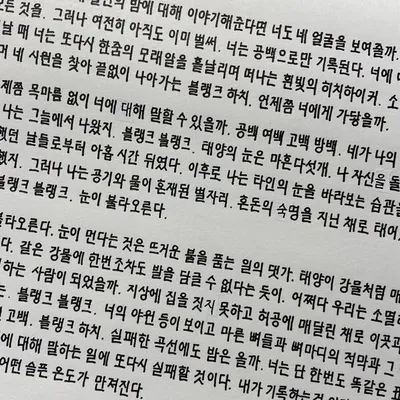 밤에 대해 이야기해준다면 너도 네 얼굴을 보여줄까.
모든 것을. 그러나 여전히 아직도 이미 벌써. 너는 공백으로만 기록된다. 너에
날 때 너는 또다시 한줌의 모래알을 흩날리며 떠나는 흰빛의 히치하이커. 소
며 네 시원을 찾아 끝없이 나아가는 블랭크 하치. 언제쯤 너에게 가닿을까.
제쯤 목마름 없이 너에 대해 말할 수 있을까. 공백 여백 고백 방백. 네가 나의
나는 그늘에서 나왔지. 블랭크 블랭크. 태양의 눈은 마흔다섯개. 나 자신을 돌
했던 날들로부터 아홉 시간 뒤였다. 이후로 나는 타인의 눈을 바라보는 습관을
했지. 그러나 나는 공기와 물이 혼재된 별자리. 혼돈의 숙명을 지닌 채로 태어
블랭크 블랭크. 눈이 불타오른다.
불타오른다. 눈이 먼다는 것은 뜨거운 불을 품는 일의 댓가. 태양이 강물처럼
다. 같은 강물에 한번조차도 발을 담글 수 없다는 듯이. 어쩌다 우리는 소멸
하는 사람이 되었을까. 지상에 집을 짓지 못하고 허공에 매달린 채로 이곳과
는. 블랭크 블랭크. 너의 야윈 등이 보이고 마른 뼈들과 뼈마디의 적막과 그
고백. 블랭크 하치. 실패한 곡선에도 밤은 올까. 너는 단 한번도 똑같은 표
에 대해 말하는 일에 또다시 실패할 것이다. 내가 기록하는 것
어떤 슬픈 온도가 만져진다.